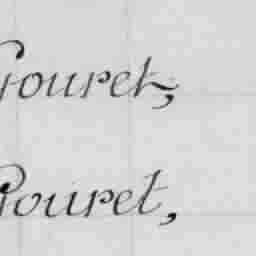 Gouret,
Rouret,